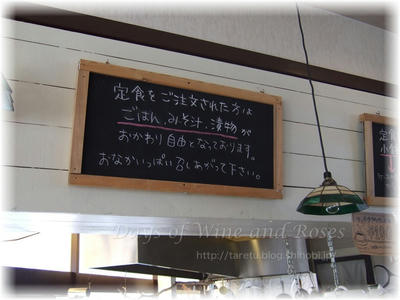 定食をご注文された方は
ごはん、みそ汁、漬物が
おかわり自由となっております。
おなかいっぱい召しあがって下さい。
定食
Days of Wine and Roses
http://taretu.blog.shinobi.jp/